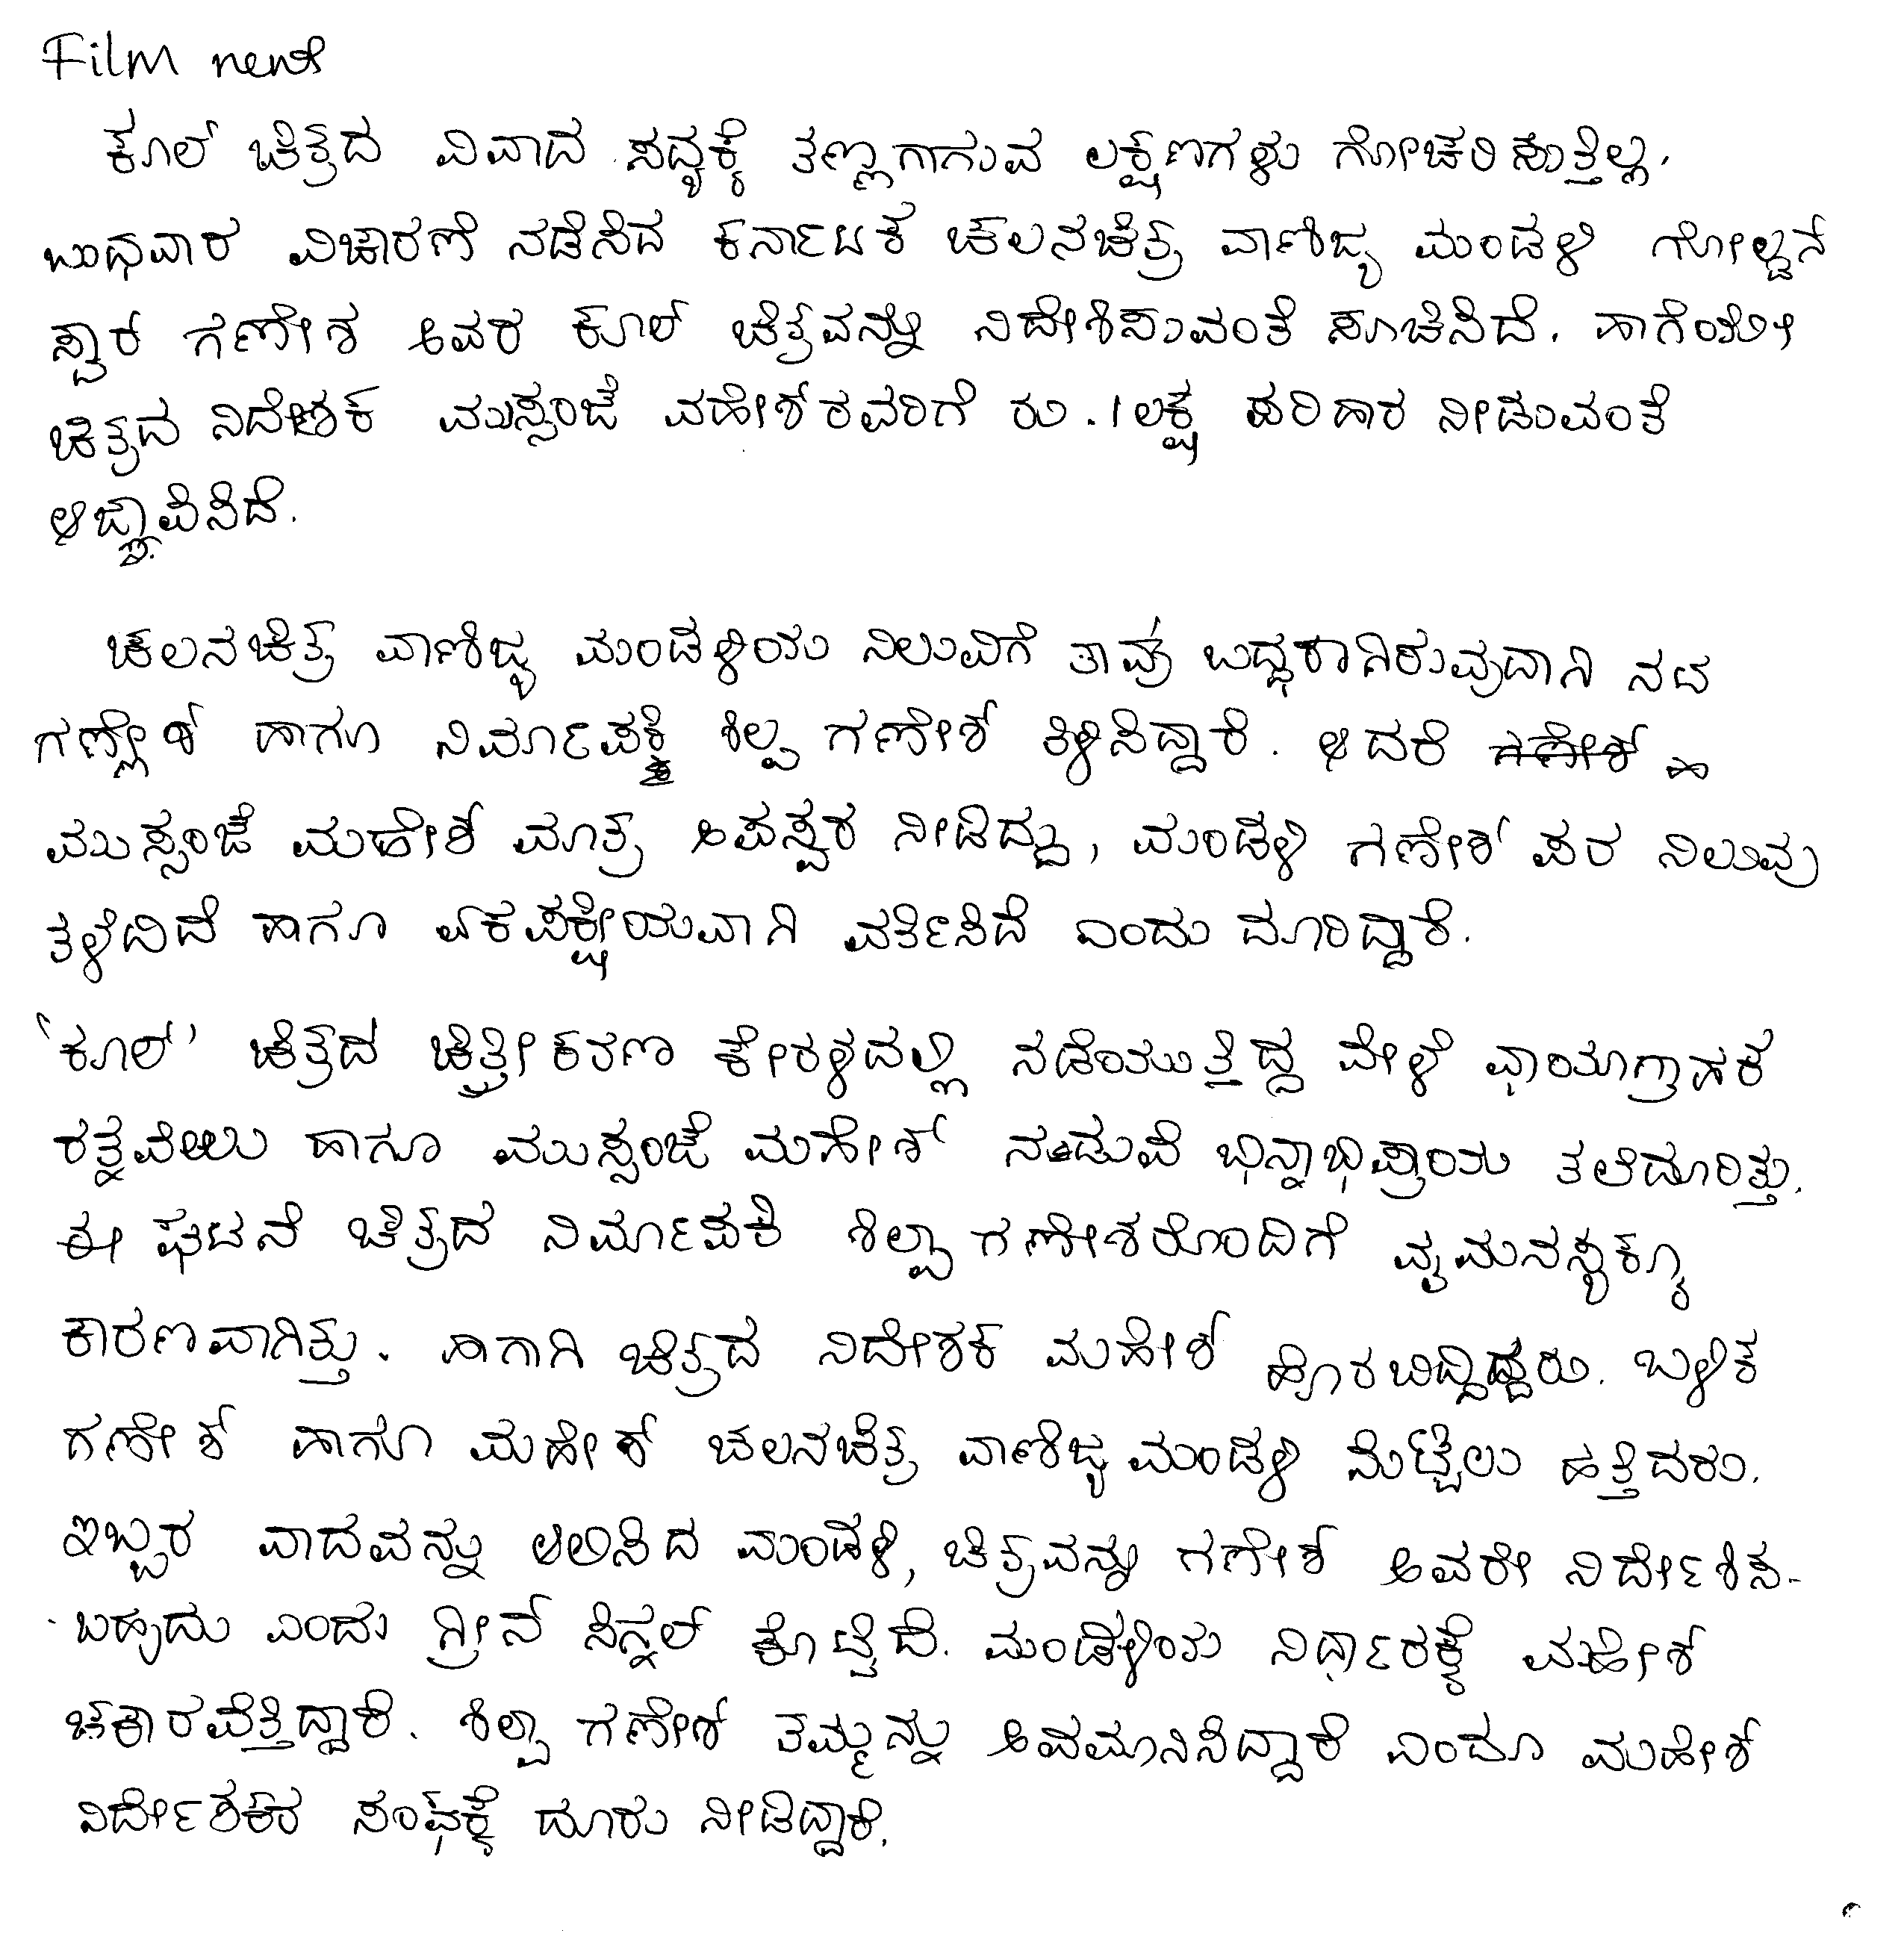 Film news
ಕೂಲ್ ಚಿತ್ರದ ವಿವಾದ ಸದ್ಯಕ್ಕೆ ತಣ್ಣಗಾಗುವ ಲಕ್ಷಣಗಳು ಗೋಚರಿಸುತ್ತಿಲ್ಲ.
ಬುಧವಾರ ವಿಚಾರಣೆ ನಡೆಸಿದ ಕರ್ನಾಟಕ ಚಲನಚಿತ್ರ ವಾಣಿಜ್ಯ ಮಂಡಳಿ ಗೋಲ್ಡನ್
ಸ್ಟಾರ್ ಗಣೇಶ ಅವರ ಕೂಲ್ ಚಿತ್ರವನ್ನು ನಿದೇಶಿಸುವಂತೆ ಸೂಚಿಸಿದೆ. ಹಾಗೆಯೇ
ಚಿತ್ರದ ನಿದೇಶಕ್ ಮುಸ್ಸಂಜೆ ಮಹೇಶ್‌ರವರಿಗೆ ರು.1ಲಕ್ಷ ಪರಿಹಾರ ನೀಡುವಂತೆ
ಆಜ್ಞಾಪಿಸಿದೆ.
ಚಲನಚಿತ್ರ ವಾಣಿಜ್ಯ ಮಂಡಳಿಯ ನಿಲುವಿಗೆ ತಾವು ಬದ್ಧರಾಗಿರುವುದಾಗಿ ನಟ
ಗಣೇಶ್ ಹಾಗೂ ನಿರ್ಮಾಪಕಿ ಶಿಲ್ಪ ಗಣೇಶ್ ತಿಳಿಸಿದ್ದಾರೆ. ಆದರೆ
ಮುಸ್ಸಂಜೆ ಮಹೇಶ್ ಮಾತ್ರ ಅಪಸ್ವರ ನೀಡಿದ್ದು, ಮಂಡಳಿ ಗಣೇಶ್ ಪರ ನಿಲುವು
ತಳೆದಿದೆ ಹಾಗೂ ಏಕಪಕ್ಷೀಯವಾಗಿ ವರ್ತಿಸಿದೆ ಎಂದು ದೂರಿದ್ದಾರೆ.
'ಕೂಲ್' ಚಿತ್ರದ ಚಿತ್ರೀಕರಣ ಕೇರಳದಲ್ಲಿ ನಡೆಯುತ್ತಿದ್ದ ವೇಳೆ ಛಾಯಾಗ್ರಾಹಕ
ರತ್ನವೇಲು ಹಾಗೂ ಮುಸ್ಸಂಜೆ ಮಹೇಶ್ ನಡುವೆ ಭಿನ್ನಾಭಿಪ್ರಾಯ ತಲೆದೂರಿತ್ತು.
ಈ ಘಟನೆ ಚಿತ್ರದ ನಿರ್ಮಾಪಕಿ ಶಿಲ್ಪಾ ಗಣೇಶರೊಂದಿಗೆ ವ್ಯಮನಸ್ಯಕ್ಕೂ
ಕಾರಣವಾಗಿತ್ತು. ಹಾಗಾಗಿ ಚಿತ್ರದ ನಿದೇಶಕ್ ಮಹೇಶ್ ಹೊರಬಿದ್ದಿದ್ದರು. ಬಳಿಕ
ಗಣೇಶ್ ಹಾಗೂ ಮಹೇಶ್ ಚಲನಚಿತ್ರ ವಾಣಿಜ್ಯ ಮಂಡಳಿ ಮೆಟ್ಟಿಲು ಹತ್ತಿದರು.
ಇಬ್ಬರ ವಾದವನ್ನು ಆಲಿಸಿದ ಮಂಡಳಿ, ಚಿತ್ರವನ್ನು ಗಣೇಶ್ ಅವರೇ ನಿರ್ದೇಶಿಸ-
-ಬಹುದು ಎಂದು ಗ್ರೀನ್ ಸಿಗ್ನಲ್ ಕೊಟ್ಟಿದೆ. ಮಂಡಳಿಯ ನಿರ್ಧಾರಕ್ಕೆ ಮಹೇಶ್
ಚಕಾರವೆತ್ತಿದ್ದಾರೆ. ಶಿಲ್ಪಾ ಗಣೇಶ್ ತಮ್ಮನ್ನು ಅವಮಾನಿಸಿದ್ದಾರೆ ಎಂದೂ ಮಹೇಶ್
ನಿರ್ದೇಶಕರ ಸಂಘಕ್ಕೆ ದೂರು ನೀಡಿದ್ದಾರೆ.